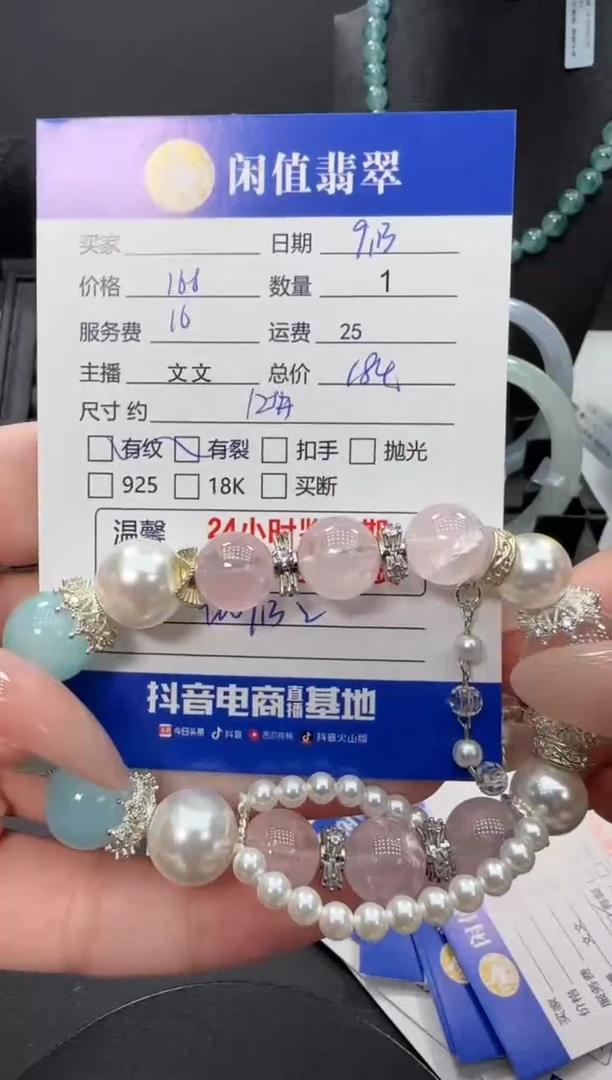 闲值翡翠
买家 日期 9.13
价格 数量 1
服务费 16 运费 25
主播 文文 总价 184
尺寸约
有纹 有裂 扣手 抛光
925 18K 买断
温馨 24小时
抖音电商直播基地
今日头条 抖音 西瓜视频 抖音火山版
闲
买家
价格
服务费
文文